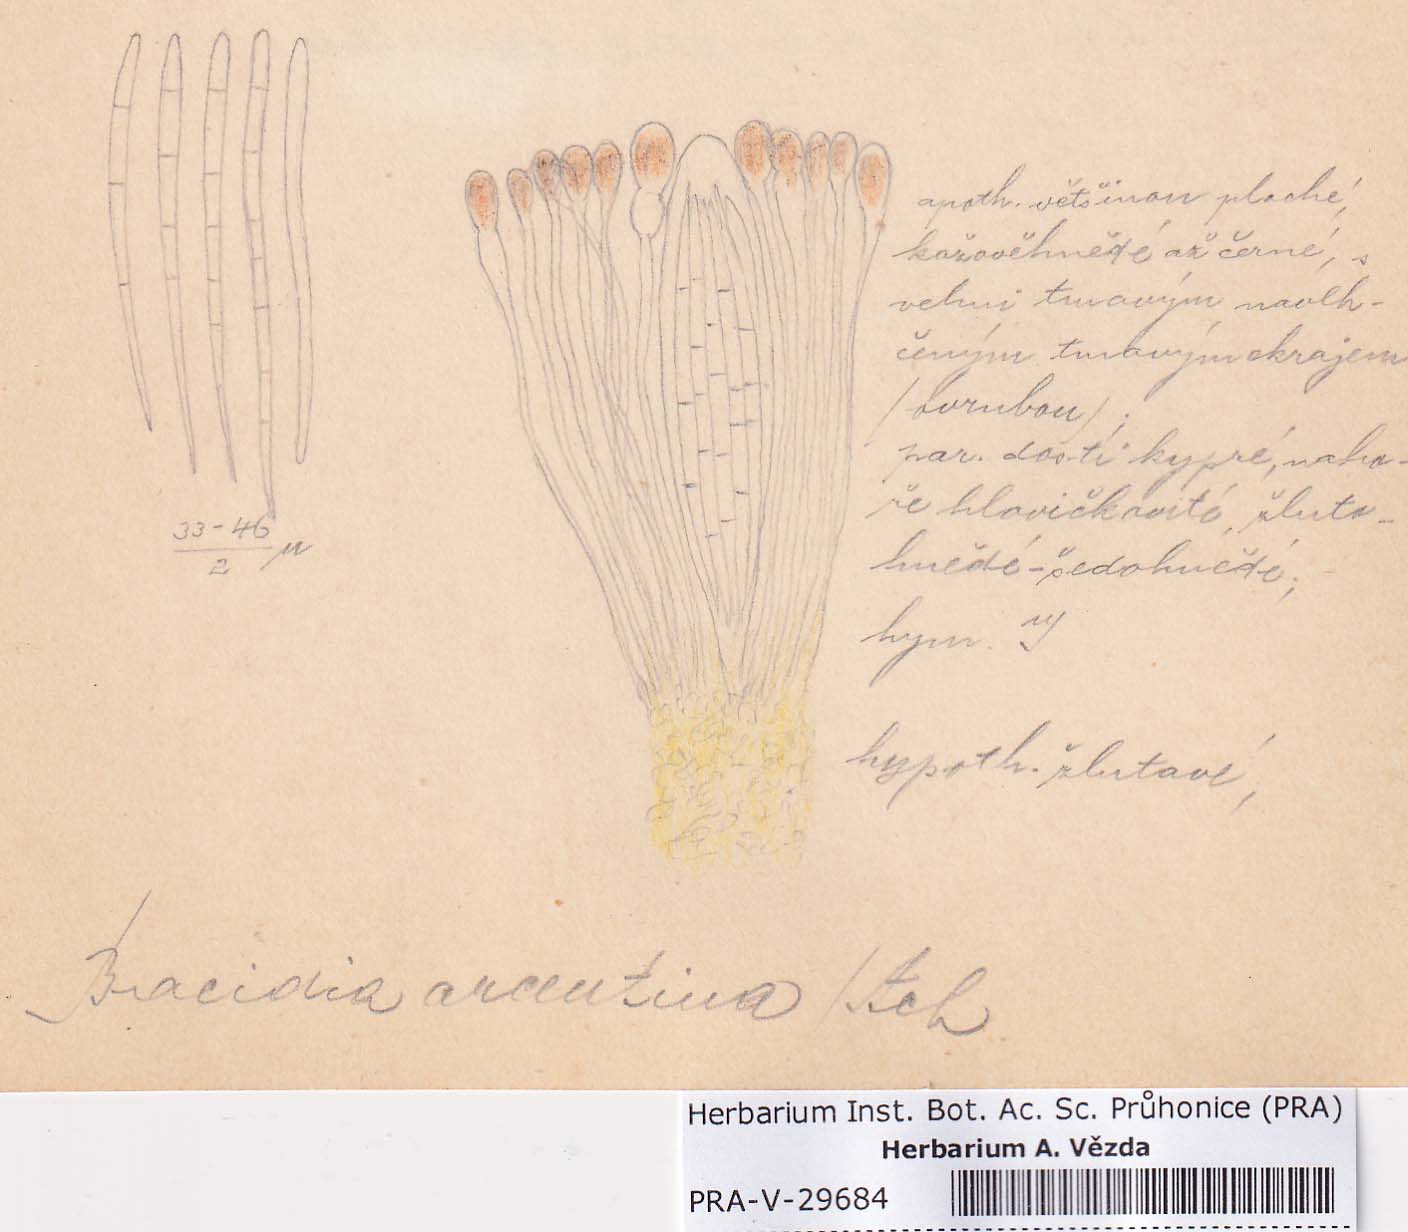 apoth. většinou ploché,
kožověhnědé až černé, s
velmi tmavým navlh-
čeným tmavým okrajem
/obrubou/;
par. dosti kypré, naho-
ře hlavičkovité, žluto-
hnědé-šedohnědé;
hym.
hypoth. žlutavé,
33-46
2 μ
Bacidia arceutina /Ach
Herbarium Inst. Bot. Ac. Sc. Průhonice (PRA)
Herbarium A. Vězda
PRA-V-29684